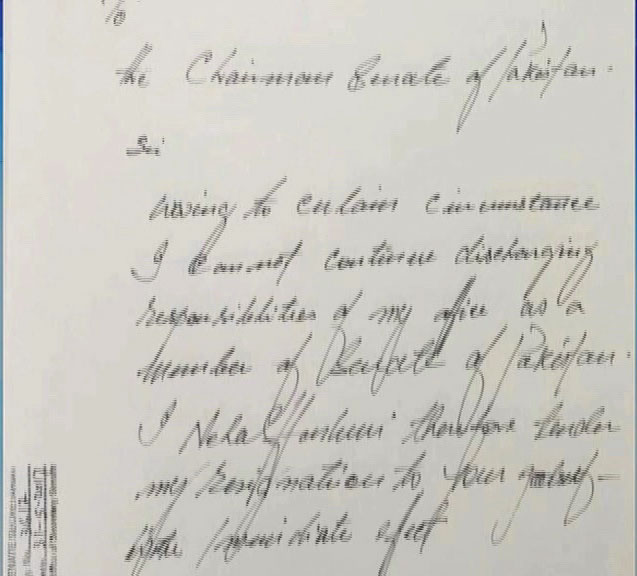 To
The Chairman Senate of Pakistan.
Sir
owing to certain circumstance
I cannot continue discharging
responsibilities of my office as a
Member of Senate of Pakistan.
I Nehal Hashmi therefore tender
my resignation to your goodself—
with immediate effect